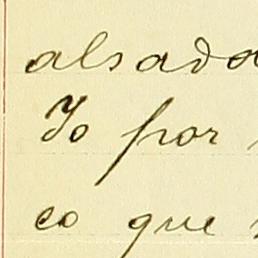 alsado
Yo por
co que